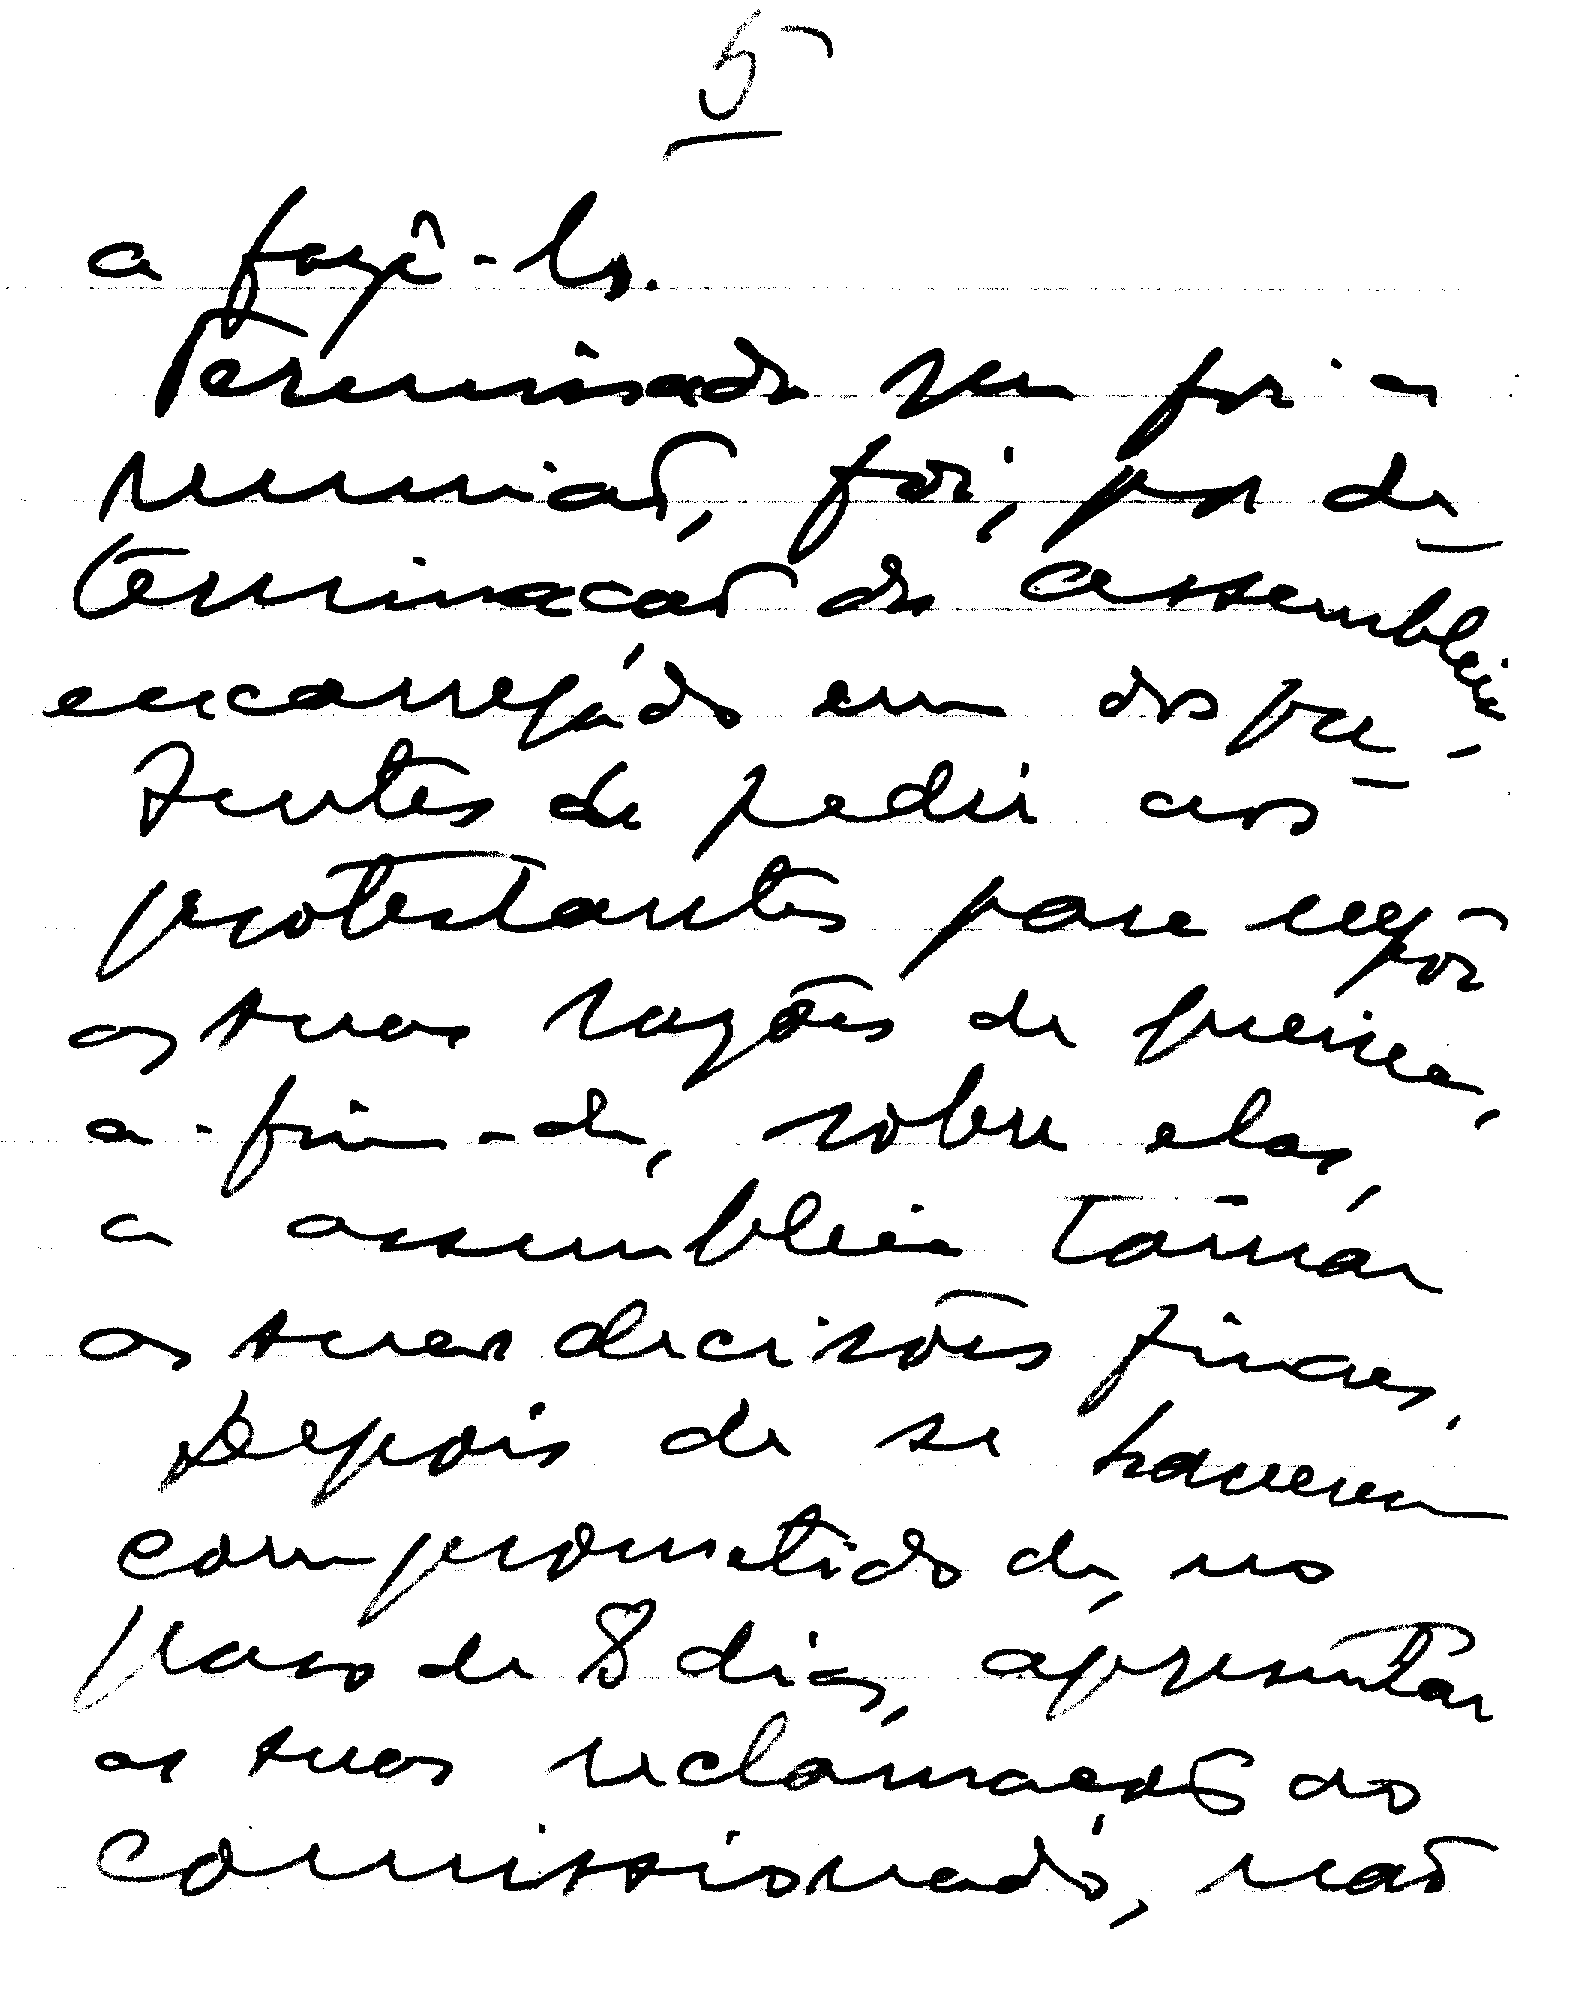 5
a fazê-lo.
Terminada que foi a
reunião, foi, por de-
terminação da assembleia
encarregado um dos pre-
sentes de pedir aos
protestantes para expôr
as suas razões de queixa,
a-fim-de, sobre elas,
a assembleia tomar
as suas decisões finaes.
Depois de se haverem
comprometido de, no
praso de 8 dias, apresentar
as suas reclamações ao
comissionado, não